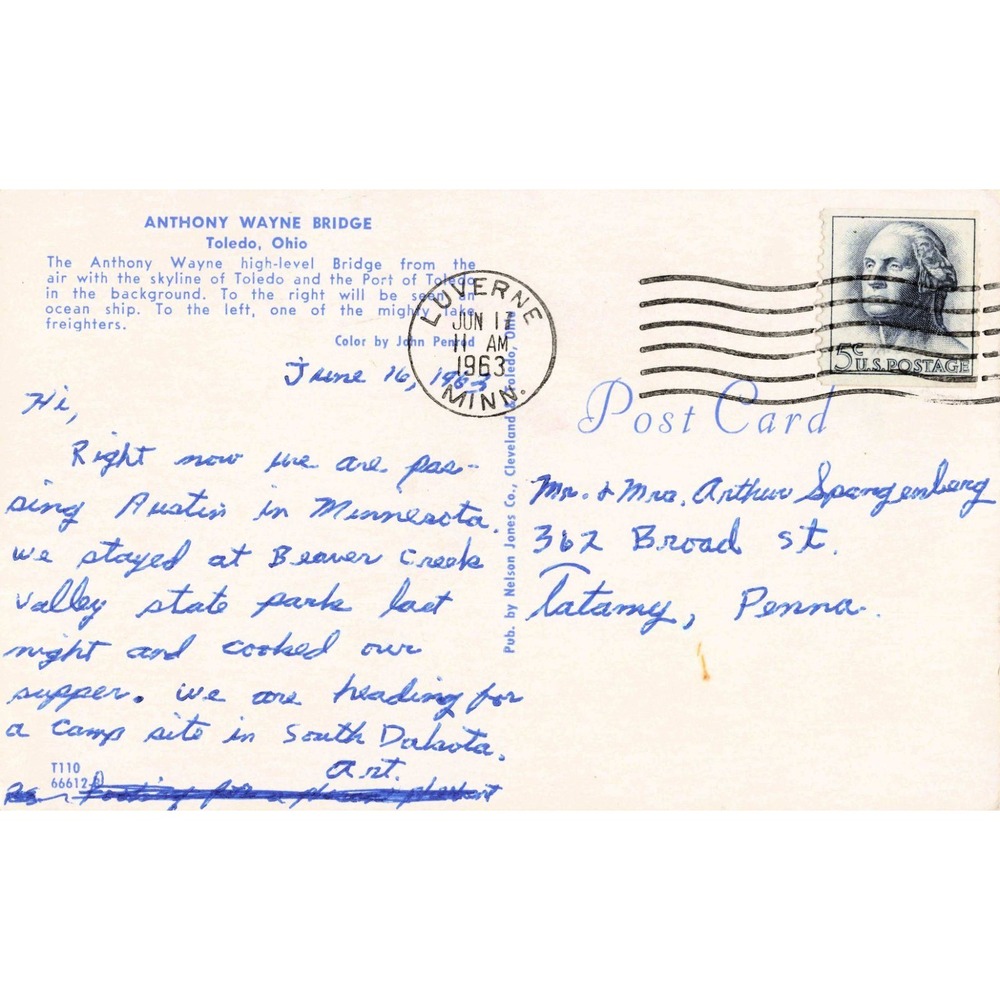 ANTHONY WAYNE BRIDGE
Toledo, Ohio
The Anthony Wayne high-level Bridge from the
air with the skyline of Toledo and the Port of Toledo
in the background. To the right will be seen an
ocean ship. To the left, one of the mighty lake
freighters.
Color by John Penrod
June 16, 1963
Hi,
Right now we are pas-
sing Austin in Minnesota.
we stayed at Beaver Creek
valley state park last
night and cooked our
supper. we are heading for
a camp site in South Dakota.
Art.
T110
66612-B
Looking for a
Pub. by Nelson Jones Co., Cleveland & Toledo, Ohio
LUVERNE
JUN 17
11 AM
1963
MINN.
5c U.S. POSTAGE
Post Card
Mr. & Mrs. Arthur Spangenberg
362 Broad St.
Tatamy, Penna.